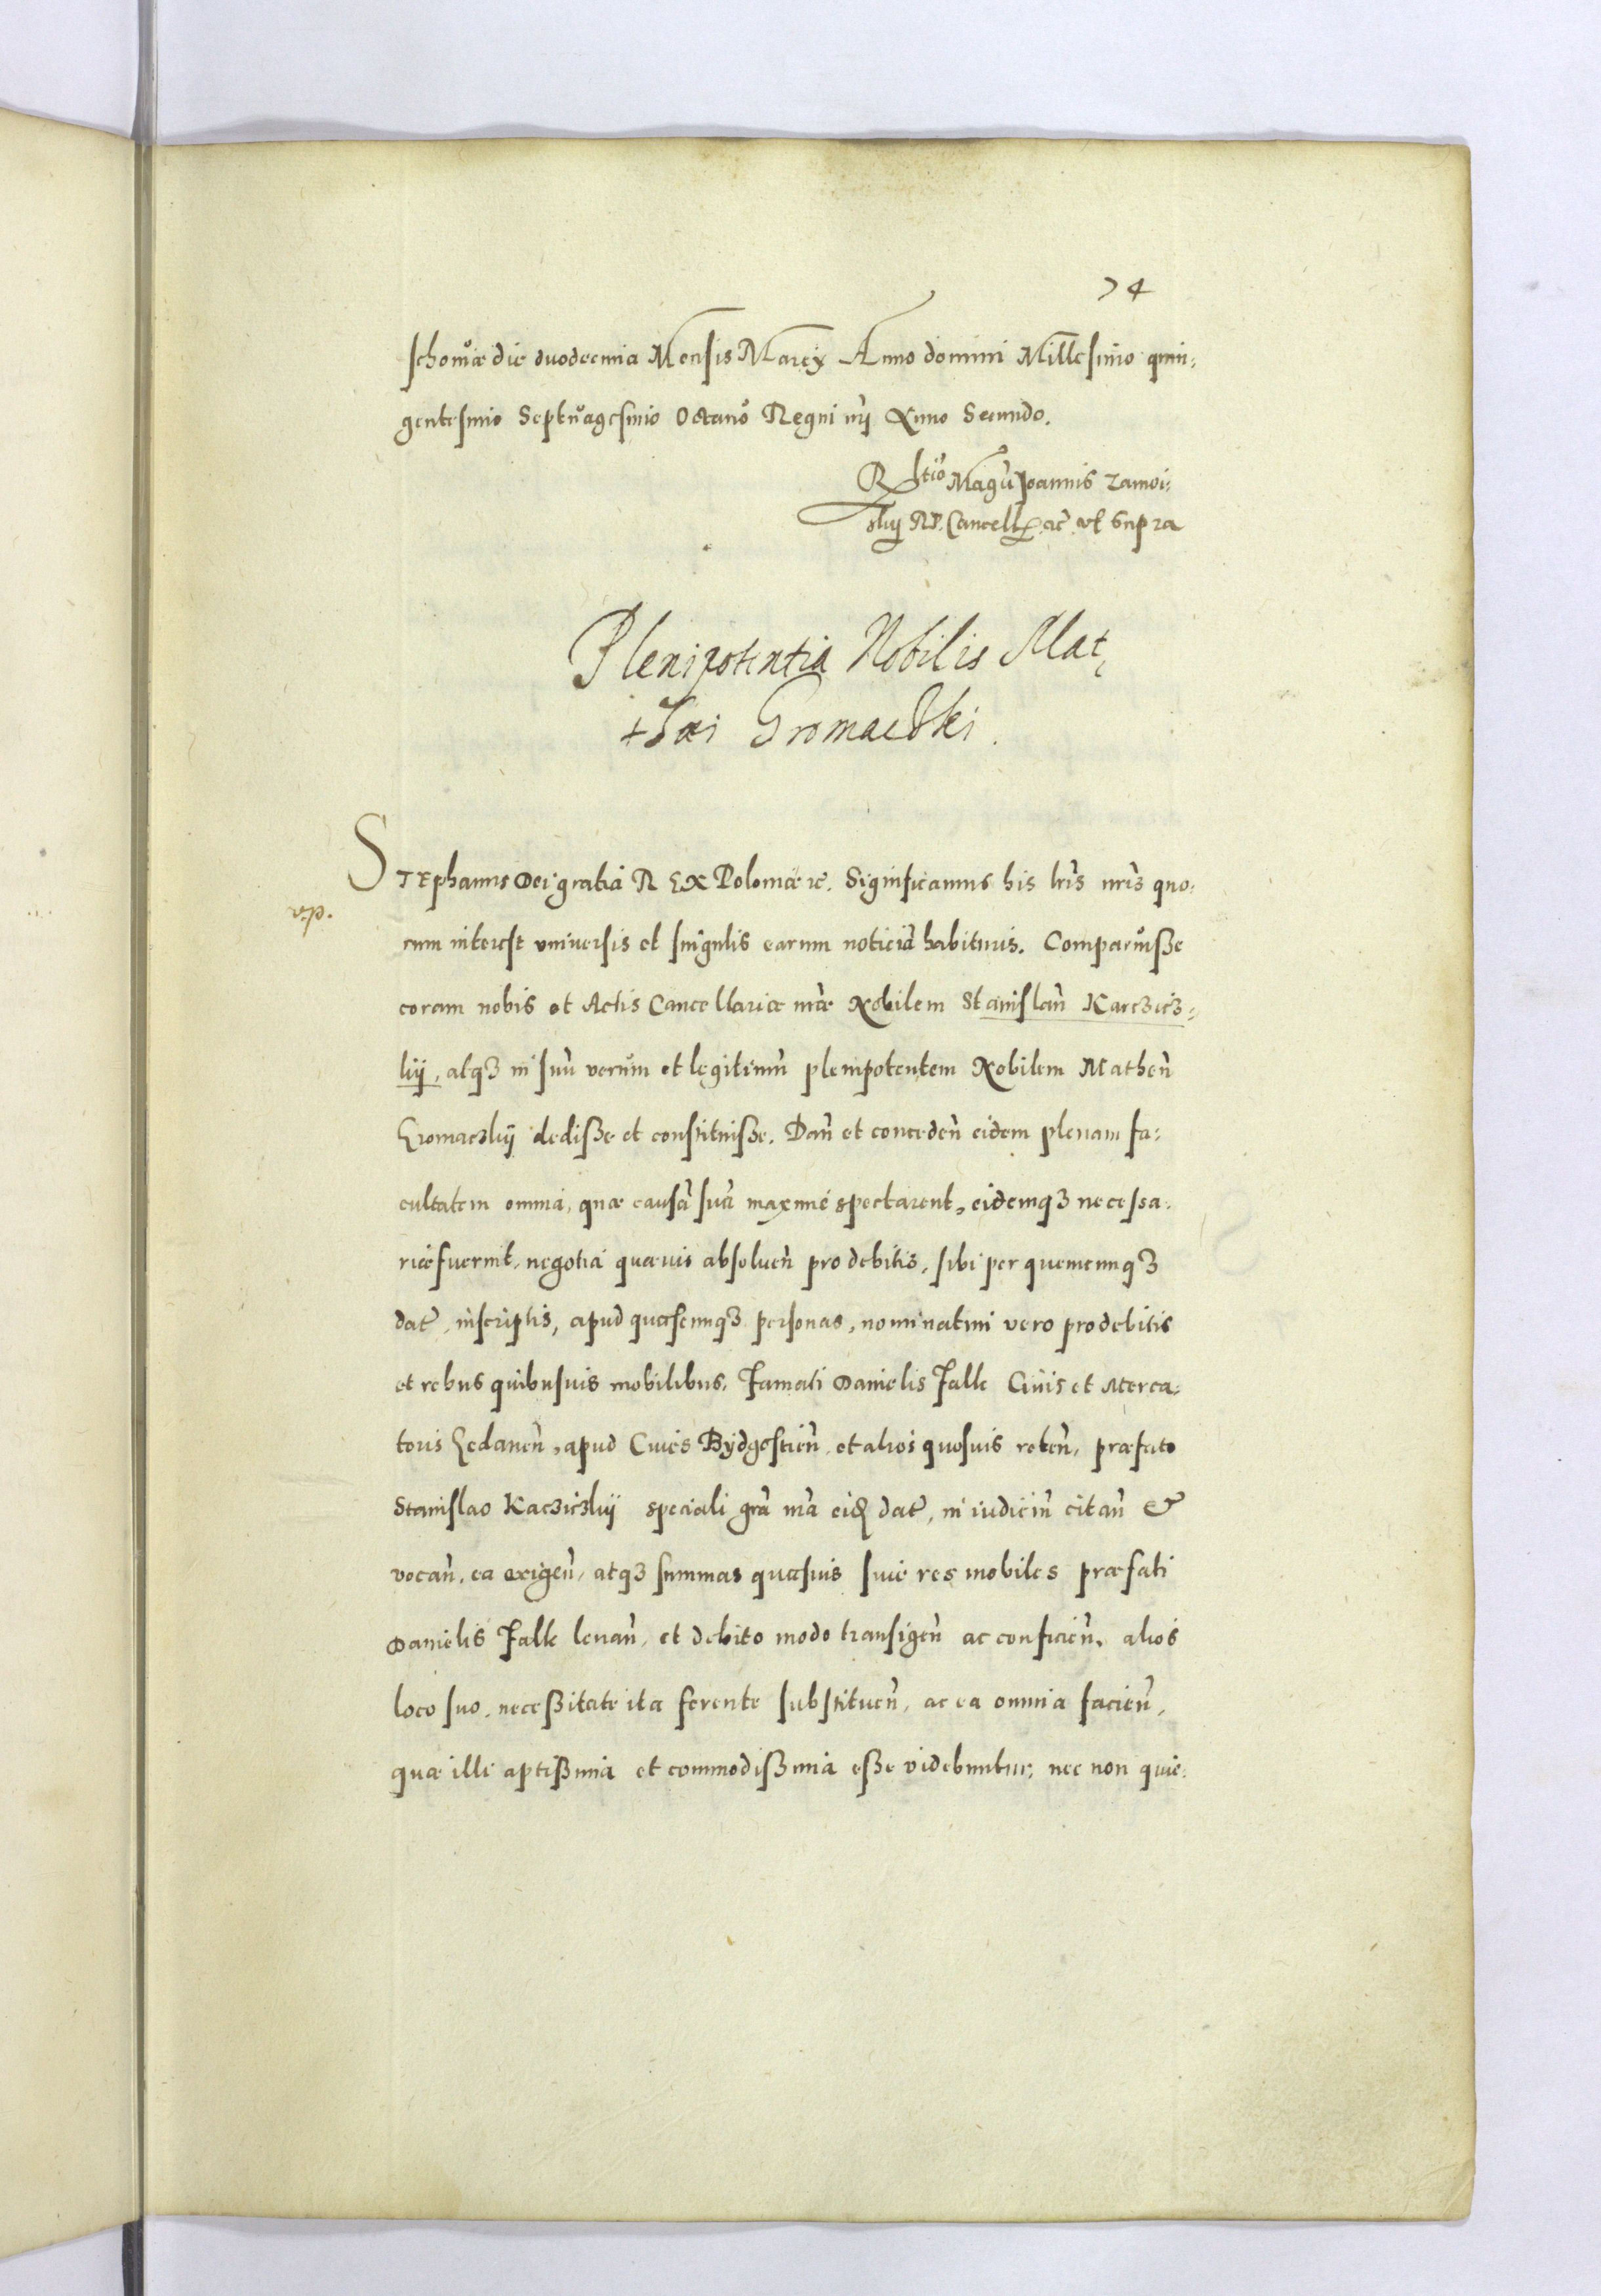 74
schouiæ die duodecima Mensis Marcÿ Anno domini Millesimo quin:
gentesimo Septuagesimo Octauo Regni nrĩ Anno Secundo.
Rltio Magci Joannis Zamoi:
skij RP. Cancell ac ut supra
Plenipotentia Nobilis Mat,
thæi Gromacski.
STEphanus Dei gratia REX Poloniæ ec. Significamus his lrĩs nrĩs quo:
v.p.
rum interest vniuersis et singulis earum noticiã habituris. Comparuisse
coram nobis et Actis Cancellariæ nrãe Nobilem Stanislaũ Karczicz:
kij, atq3 in suũ verum et legitimũ plenipotentem Nobilem Matheũ
Gromaczkij dedisse et constituisse. Dañ et concedeñ eidem plenam fa:
cultatem omnia, quæ causã suã maxime spectarent, eidemq3 necessa:
ria fuerint, negotia quæuis absolueñ pro debitis, sibi per quemcunq3
dat̃, inscriptis, apud quascunq3 personas, nominatim vero pro debitis
et rebus quibusuis mobilibus, Famati Danielis Falk Ciuis et Merca:
toris Gedaneñ, apud Ciues Bÿdgostieñ, et alios quosuis reteñ, præfato
Stanislao Kacziczkij speciali grã nrã eid dat̃, in iudiciũ citañ &
vocañ, ea exigeñ, atq3 summas quasuis siue res mobiles præfati
Danielis Falk leuañ, et debito modo transigeñ ac conficieñ, alios
loco suo, necessitate ita ferente substitueñ, ac ea omnia facieñ,
quæ illi aptissima et commodissima esse videbuntur; nec non quie: